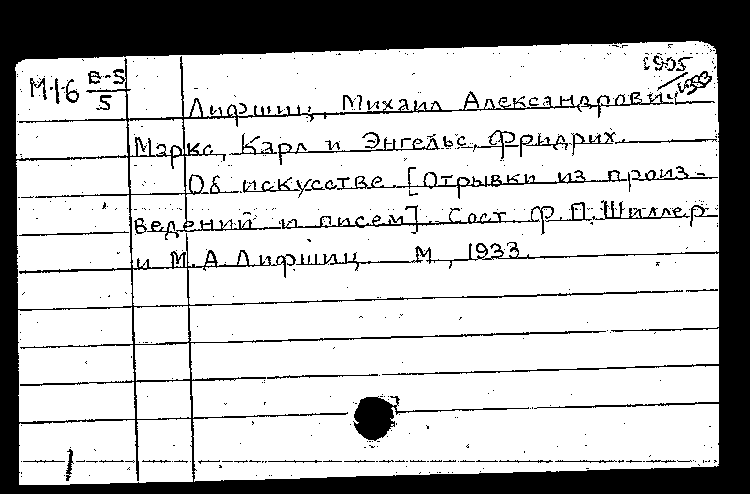 1905
1933
М-16 В-5/5
Лифшиц, Михаил Александрович
Маркс, Карл и Энгельс, Фридрих.
Об искусстве. [Отрывки из произ-
ведений и писем]. Сост. Ф.П. Шиллер
и М.А. Лифшиц. М., 1933.